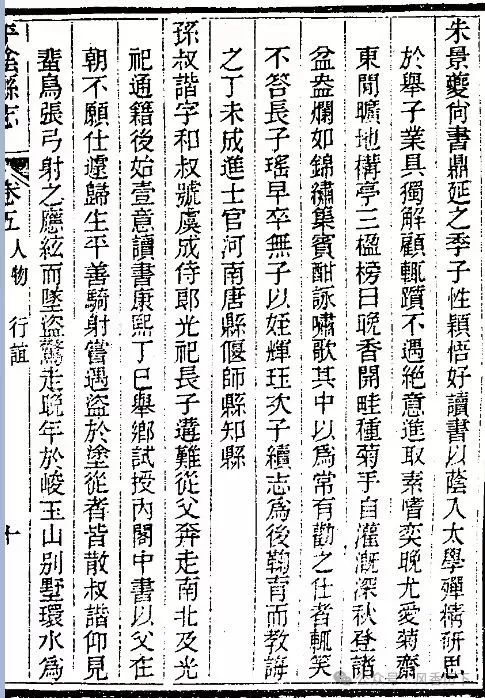 朱景夔尙書鼎延之季子性穎悟好讀書以蔭入太學殫精研思
於舉子業具獨解顧輒躓不遇絕意進取素嗜奕晚尤愛菊齋
東閒曠地構亭三楹榜曰晚香開畦種菊手自灌漑深秋登諸
盆盎爛如錦繡集賓酣詠嘯歌其中以爲常有勸之仕者輒笑
不答長子瑤早卒無子以姪輝珏次子續志爲後鞠育而教誨
之丁未成進士官河南唐縣偃師縣知縣
孫叔諧字和叔號虞成侍郞光祀長子遘難從父奔走南北及光
祀通籍後始壹意讀書康熙丁巳舉鄉試授內閣中書以父在
朝不願仕遽歸生平善騎射嘗遇盜於塗從者皆散叔諧仰見
蜚鳥張弓射之應絃而墜盜驚走晚年於峻玉山别墅環水爲
平陰縣志 卷五 人物 行誼 十